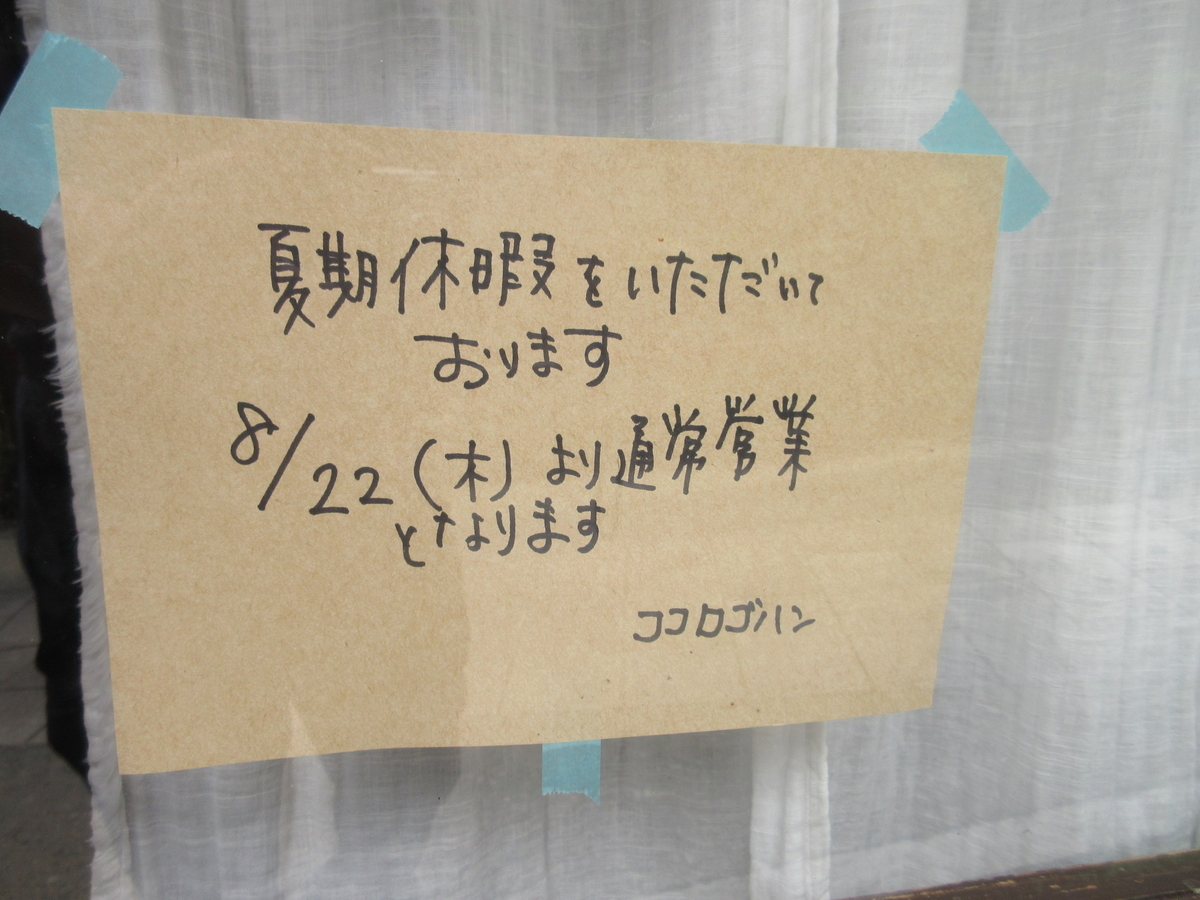 夏期休暇をいただいて
おります
8/22(木)より通常営業
となります
ココロゴハン